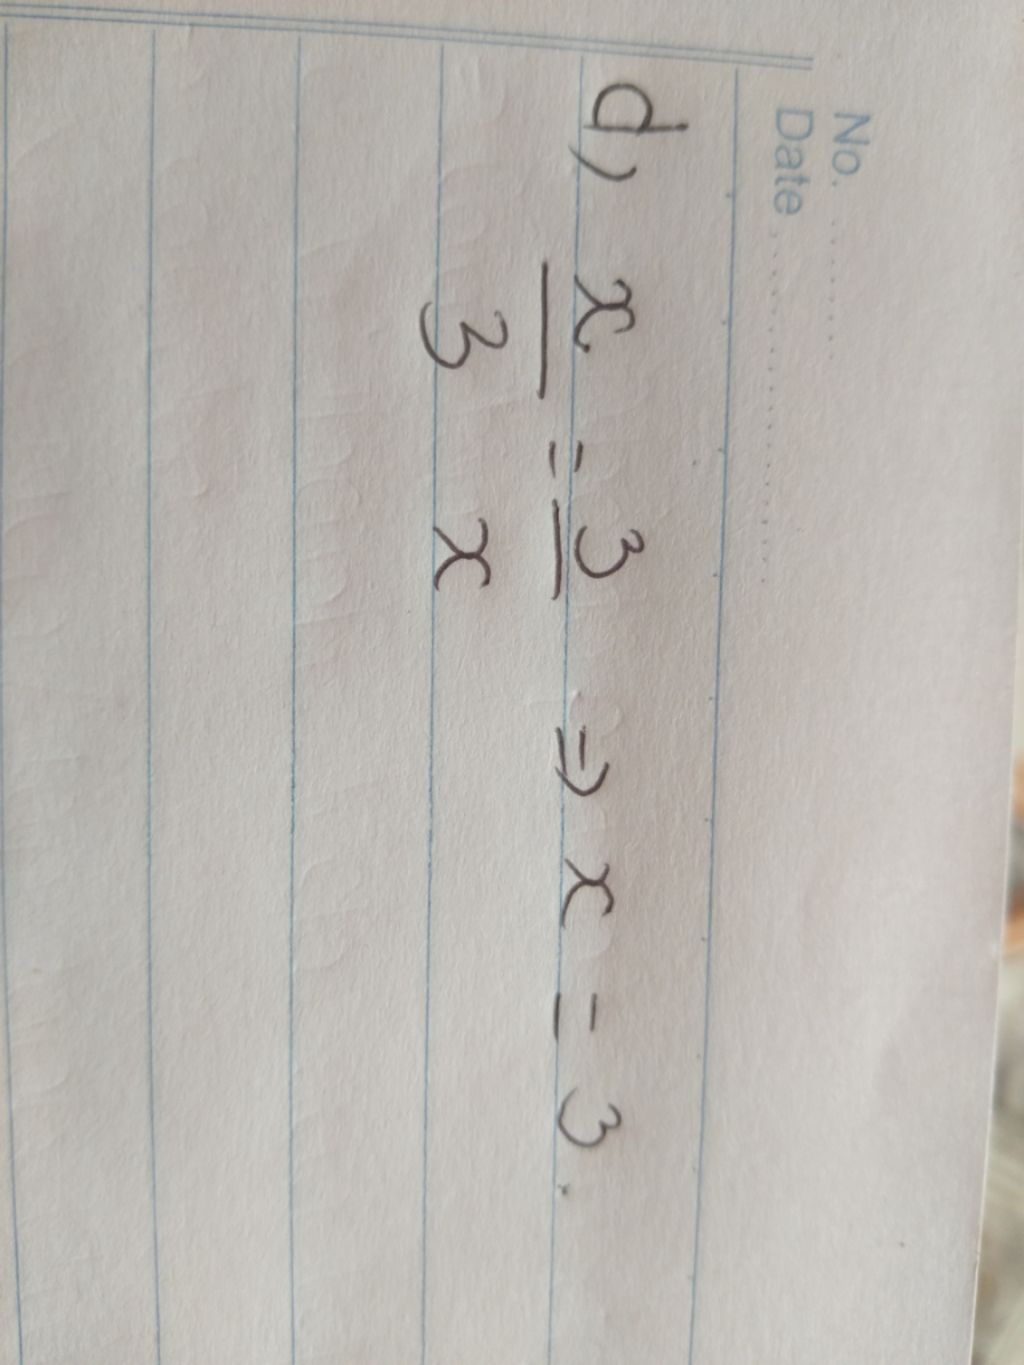 No.
Date
d, x/3 = 3/x ⇒ x = 3.